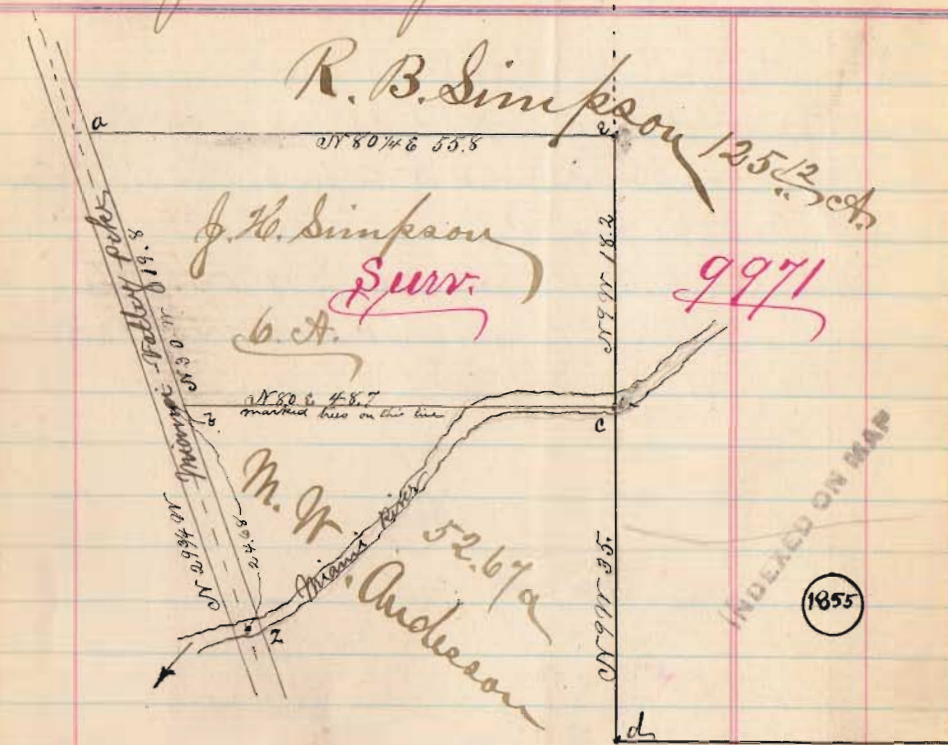 R. B. Simpson 125 12 A.
a
N 80 1/4 E 55.8
J. H. Simpson
Surv. 9971
6. A.
Miami-Valley pike
N 30 W 19.8
N 9 W 18.2
N 80 E 48.7
marked trees on this line
c
M. W. Anderson
52.67 a
Miami River
24.68
N 29 3/4 W
Z
N 9 W 35.
INDEXED ON MAP
1855
d